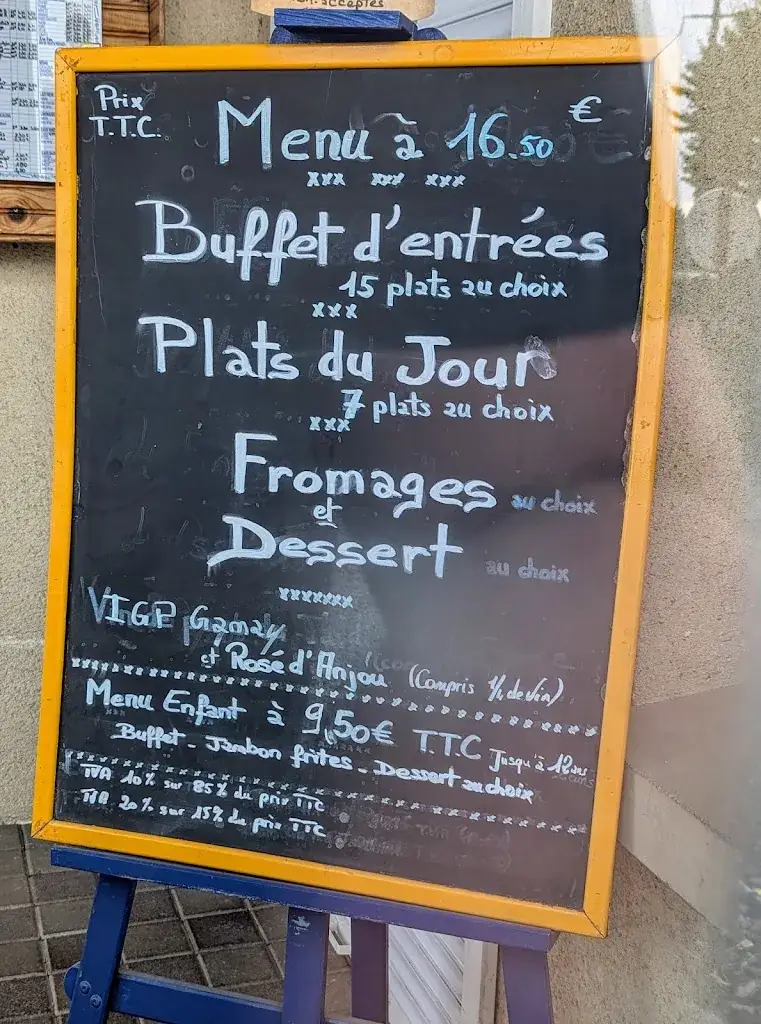 en.acceptés
Prix
T.T.C.
Menu à 16.50 €
xxx xxx xxx
Buffet d'entrées
15 plats au choix
xxx
Plats du Jour
7 plats au choix
xxx
Fromages au choix
et
Dessert au choix
xxxxxxx
VIGP Gamay
et Rosé d'Anjou (Compris 1/4 de Vin)
Menu Enfant à 9,50€ TTC Jusqu'à 12 ans
Buffet - Jambon frites - Dessert au choix
TVA 10% sur 85% du prix TTC
TVA 20% sur 15% du prix TTC